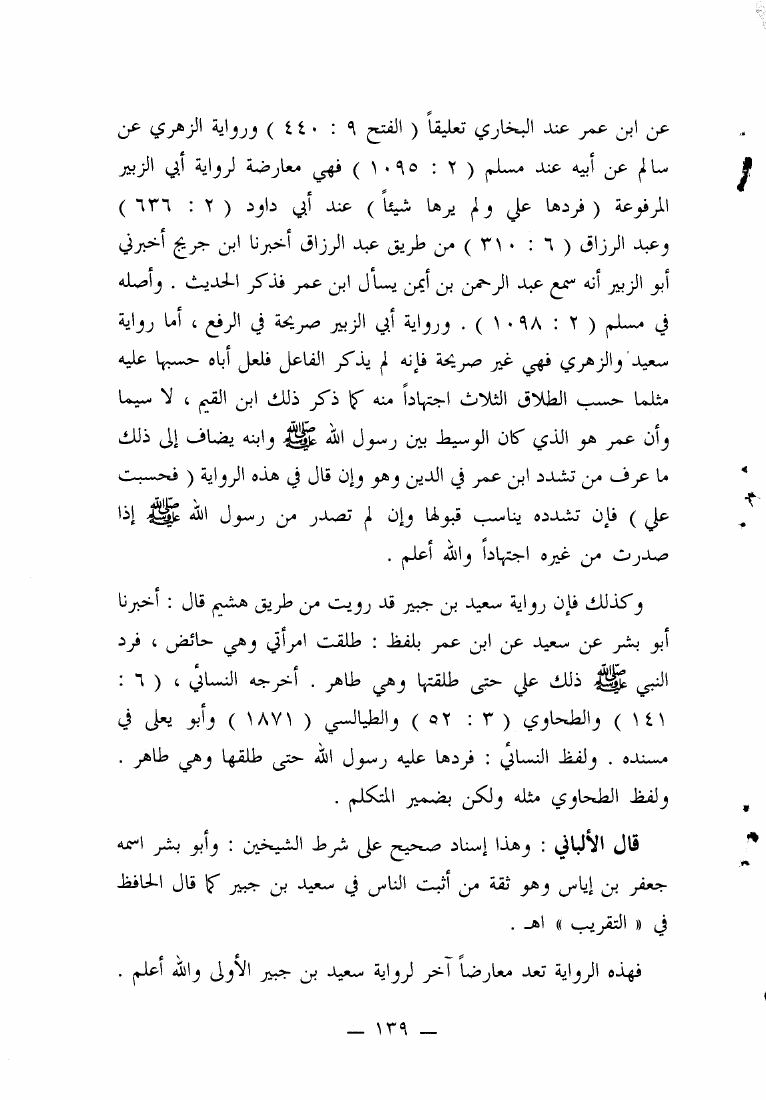 عن ابن عمر عند البخاري تعليقاً ( الفتح ٩ : ٤٤٠ ) ورواية الزهري عن
سالم عن أبيه عند مسلم ( ٢ : ١٠٩٥ ) فهي معارضة لرواية أبي الزبير
المرفوعة ( فردها علي ولم يرها شيئاً ) عند أبي داود ( ٢ : ٦٣٦ )
وعبد الرزاق ( ٦ : ٣١٠ ) من طريق عبد الرزاق أخبرنا ابن جريج أخبرني
أبو الزبير أنه سمع عبد الرحمن بن أيمن يسأل ابن عمر فذكر الحديث . وأصله
في مسلم ( ٢ : ١٠٩٨ ) . ورواية أبي الزبير صريحة في الرفع ، أما رواية
سعيد والزهري فهي غير صريحة فإنه لم يذكر الفاعل فلعل أباه حسبها عليه
مثلما حسب الطلاق الثلاث اجتهاداً منه كما ذكر ذلك ابن القيم ، لا سيما
وأن عمر هو الذي كان الوسيط بين رسول الله ﷺ وابنه يضاف إلى ذلك
ما عرف من تشدد ابن عمر في الدين وهو وإن قال في هذه الرواية ( فحسبت
علي ) فإن تشدده يناسب قبولها وإن لم تصدر من رسول الله ﷺ إذا
صدرت من غيره اجتهاداً والله أعلم .
وكذلك فإن رواية سعيد بن جبير قد رويت من طريق هشيم قال : أخبرنا
أبو بشر عن سعيد عن ابن عمر بلفظ : طلقت امرأتي وهي حائض ، فرد
النبي ﷺ ذلك علي حتى طلقتها وهي طاهر . أخرجه النسائي ، ( ٦ :
١٤١ ) والطحاوي ( ٣ : ٥٢ ) والطيالسي ( ١٨٧١ ) وأبو يعلى في
مسنده . ولفظ النسائي : فردها عليه رسول الله حتى طلقها وهي طاهر .
ولفظ الطحاوي مثله ولكن بضمير المتكلم .
قال الألباني : وهذا إسناد صحيح على شرط الشيخين : وأبو بشر اسمه
جعفر بن إياس وهو ثقة من أثبت الناس في سعيد بن جبير كما قال الحافظ
في « التقريب » اهـ .
فهذه الرواية تعد معارضاً آخر لرواية سعيد بن جبير الأولى والله أعلم .
— ١٣٩ —